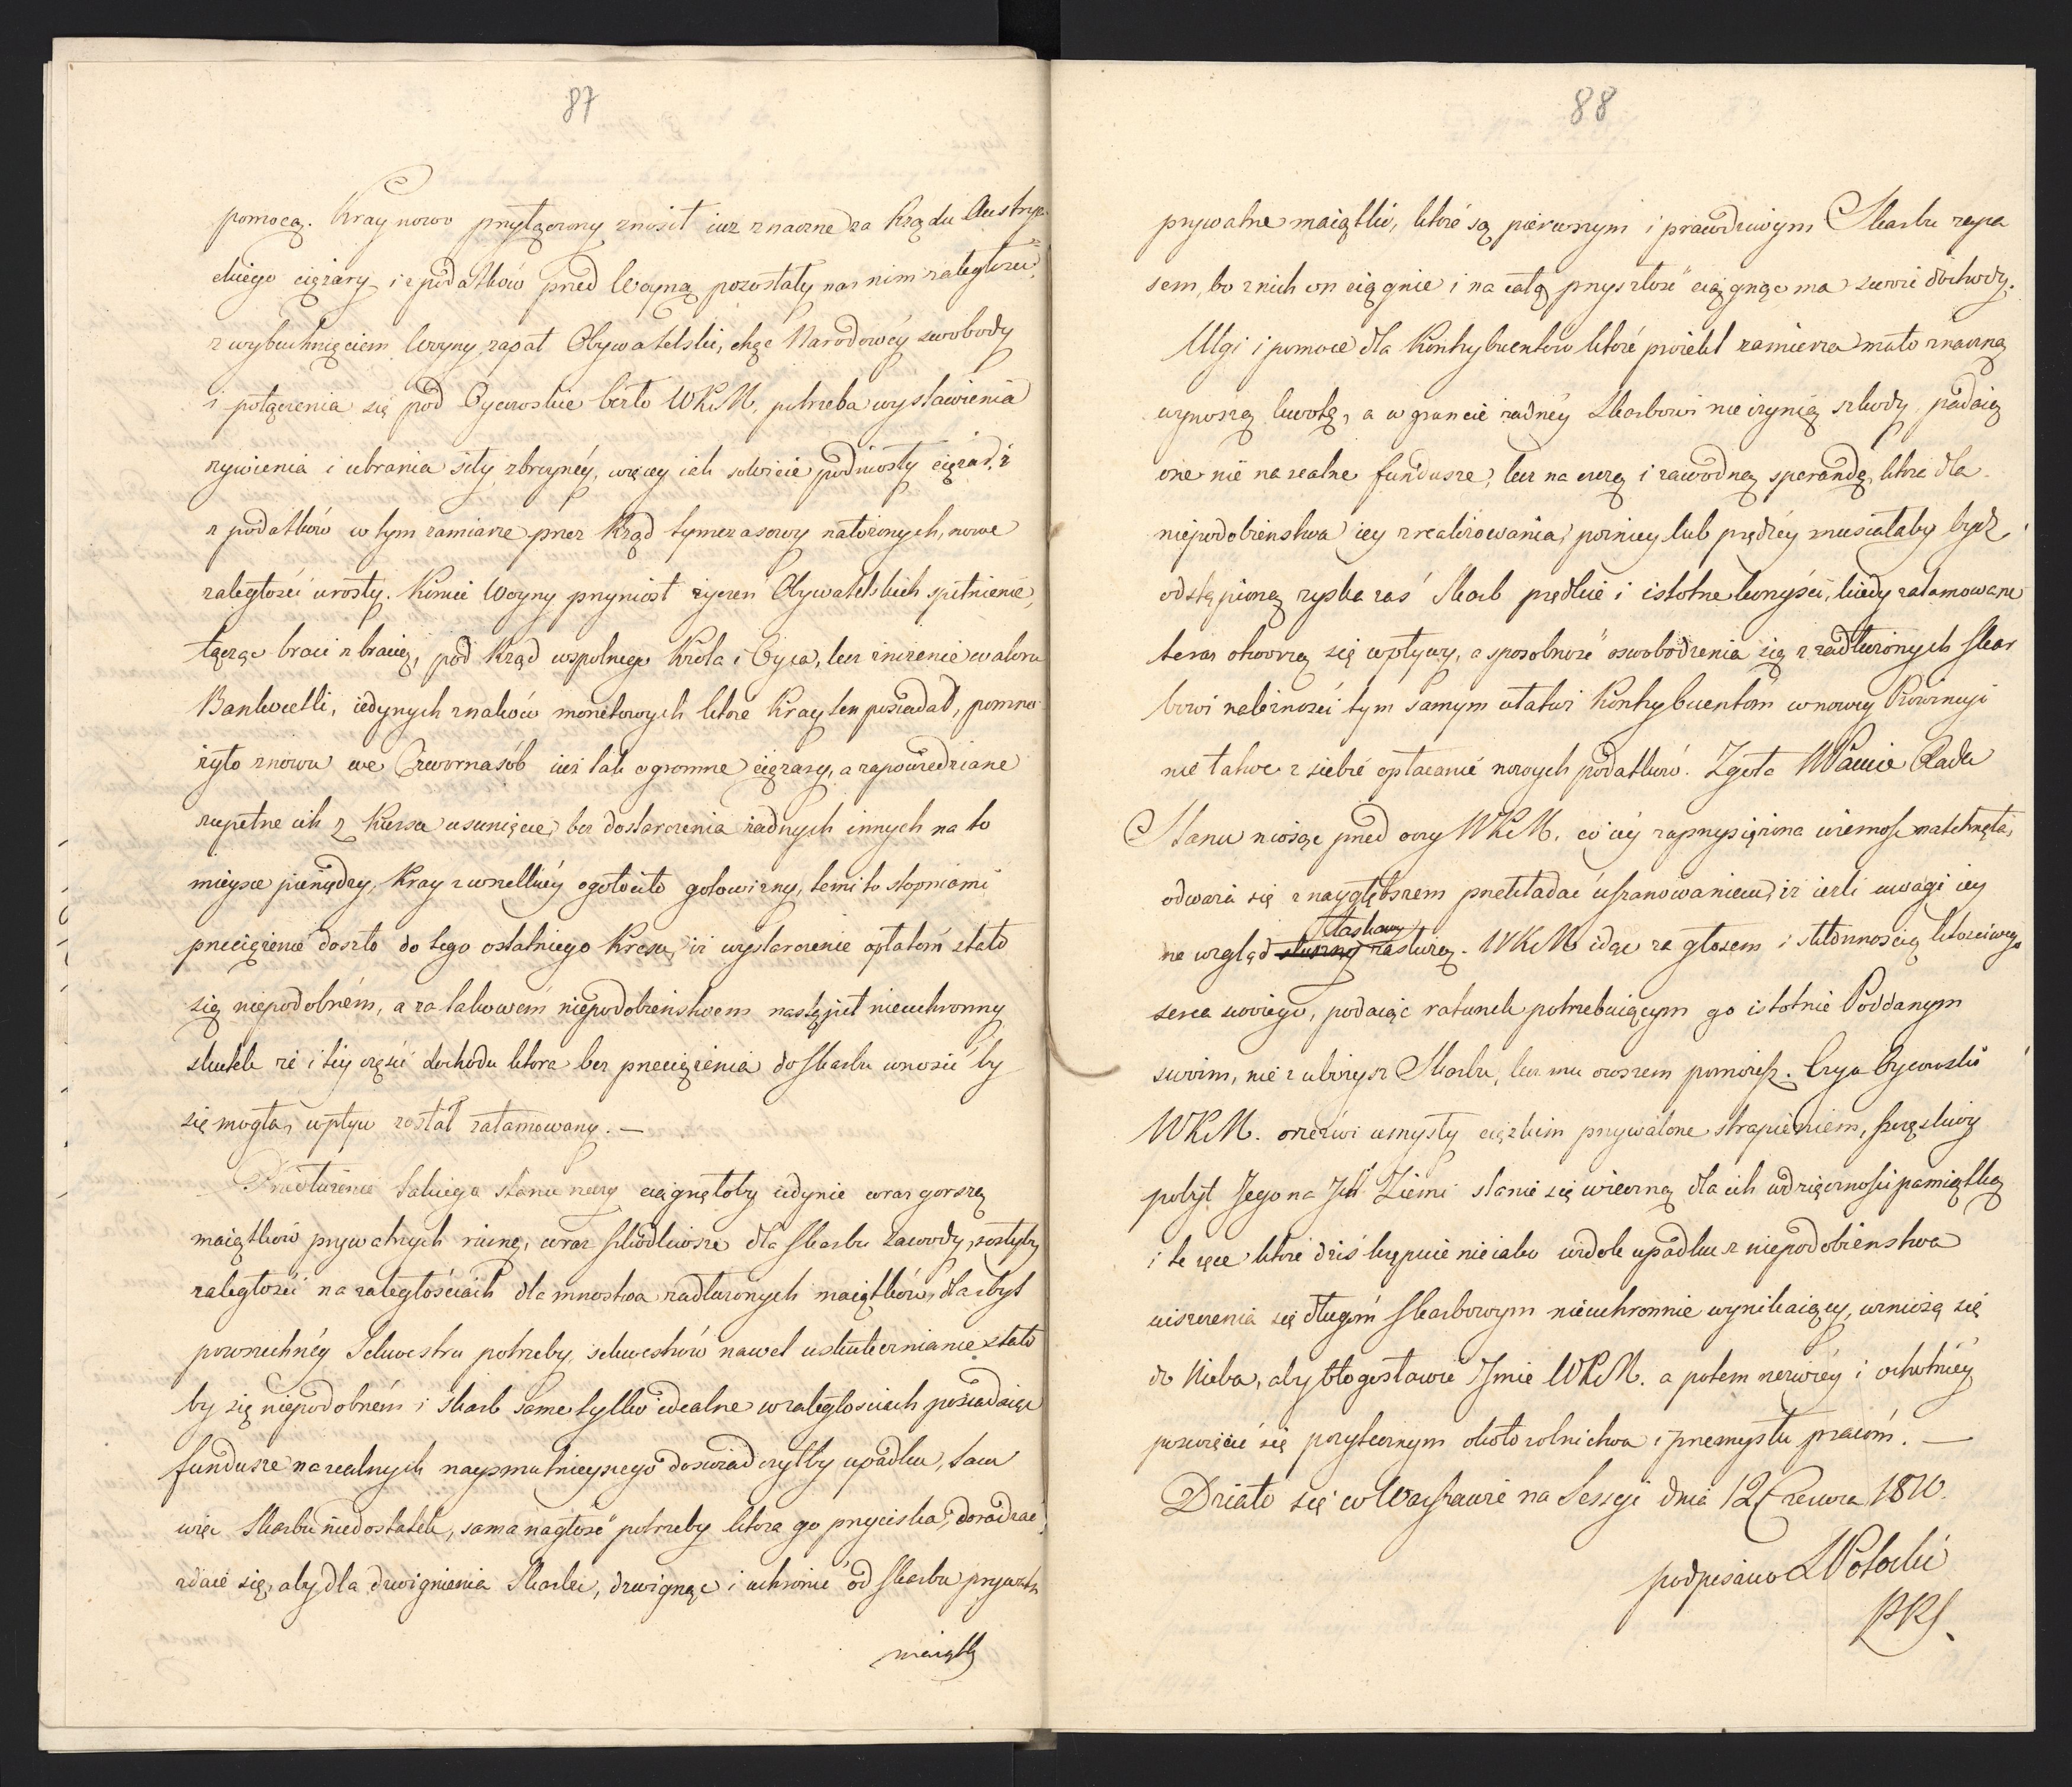 87
pomocą. Kray nowo przyłączony znosił iuż znaczne za Rządu Austrya-
ckiego ciężary, i z podatków przed Woyną pozostały na nim zaległości.
z wybuchnięciem Woyny zapał Obywatelski, chęć Narodowéy swobody
i połączenia się pod Oycowskie berło WKM, potrzeba wystawienia
żywienia i ubrania siły zbroynéy, więcey iak sowicie podniosły ciężar, i
z podatków w tym zamiarze przez Rząd tymczasowy nałożonych, nowe
zaległości urosły. Koniec Woyny przyniósł życzeń Obywatelskich spełnienie,
łącząc braci z bracią, pod Rząd wspólnego Króla i Oyca, lecz zniżenie waloru
Bankocetli, iedynych znaków monetowych które Kray ten posiadał, pomno-
żyło znowu we Czwornasób iuż tak ogromne ciężary, a zapowiedziane
zupełne ich z Kursu usunięcie, bez dostarczenia żadnych innych na to
mieysce pieniędzy, Kray z wszelkiéy ogołociło gotowizny, temi to stopniami
przeciążenie doszło do tego ostatniego Kresu, iż wystarczenie opłatom stało
się niepodobném, a za takowém niepodobieństwem nastąpił nieuchronny
skutek że i téy części dochodu która bez przeciążenia do Skarbu wnosić by
się mogła, wpływ został zatamowany. —
Przedłużenie takiego stanu rzeczy ciągnęłoby iedynie coraz gorszą
maiątków prywatnych ruinę, coraz szkodliwsze dla Skarbu zawody, rosłyby
zaległości na zaległościach dla mnostwa zadłużonych maiątków, dla zbyt
powszechnéy Sekwestru potrzeby, sekwestrów nawet uskutecznianie stało
by się niepodobném i Skarb same tylko idealne w zaległościach posiadaiąc
fundusze na realnych naysmutnieyszego doświadczyłby upadku, sam
więc Skarbu niedostatek, sama nagłość potrzeby która go przyciska, doradzać
zdaie się, aby dla dzwignienia Skarbu, dzwignąć i uchronić od Skarbu prywatn
maiątk
88
prywatne maiątki, które są pierwszym i prawdziwym Skarbu zapa
sem, bo z nich on ciągnie i na całą przyszłość ciągnąć ma swoie dochody.
Ulgi i pomoce dla Kontrybuentów które proiekt zamierza mało znaczną
wynoszą kwotę, a w gruncie żadnéy Skarbowi nie czynią szkody, padaią
one nie na realne fundusze, lecz na czczą i zawodną sperandę, która dla
niepodobienstwa iey zrealizowania, pozniey lub prędzéy musiałaby bydź
odstąpioną, zyska zaś Skarb prędkie i istotne korzyści, kiedy zatamowane
teraz otworzą się wpływy, a sposobność oswobodzenia się z zadłużonych Skar
bowi należności tym samym ułatwi Kontrybuentom w nowey Prowincyi
nie takoe z siebie opłacanie nowych podatków. Zgoła NPanie Rada
Stanu niosąc przed oczy WKM. co iéy zaprzysiężona wierność natchnęła,
odważa się z naygłębszem przekładać uszanowaniem, iż ieżli uwagi iey
łaskawy
na wzgląd słuszny zasłużą. WKM idąc za głosem i skłonnością litościwego
serca swoiego, podaiąc ratunek potrzebuiącym go istotnie Poddanym
swoim, nie zubożysz Skarbu, lecz mu owszem pomożesz. Ręka Oycowska
WKM. orzeźwi umysły ciężkim przywalone strapieniem, szczęśliwy
pobyt Jego na Ich Ziemi stanie się wieczną dla ich wdzięczności pamiątką
i te ręce które dziś krępuie nieiako widok upadku z niepodobieństwa
uiszczenia się długom skarbowym nieuchronnie wynikaiący, wzniosą się
do Nieba, aby błogosławić Imie WKM. a potem rzezwiéy i ochotniéy
poswięcić się pożytecznym około rolnictwa i przemysłu pracom. —
Działo się w Warszawie na Sessyi dnia 12 Czerwca 1810.
podpisano LPotocki
PRS.